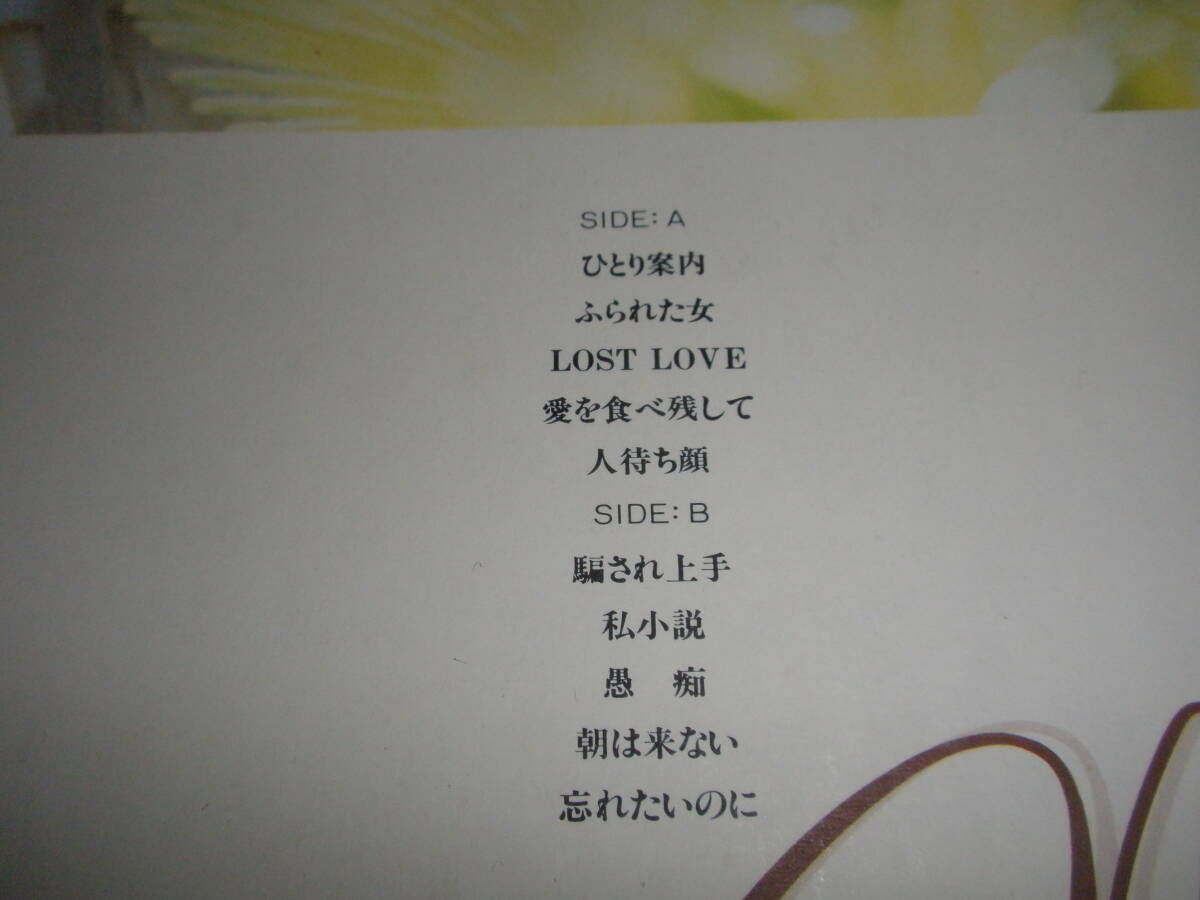 SIDE: A
ひとり案内
ふられた女
LOST LOVE
愛を食べ残して
人待ち顔
SIDE: B
騙され上手
私小説
愚　痴
朝は来ない
忘れたいのに